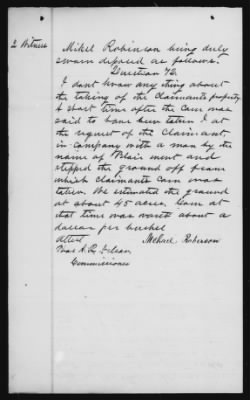 2 Witness
Mikel Robinson being duly
sworn deposed as follows.
Question 72.
I dont know any thing about
the taking of the claimants property
A short time after the Corn was
said to have been taken I at
the request of the Claimant,
in company with a man by the
name of Blair went and
stepped the ground off from
which claimants corn was
taken. We estimated the ground
at about 45 acres. Corn at
that time was worth about a
dollar per bushel
Attest Michael Roberson
A. R.
Commissioner